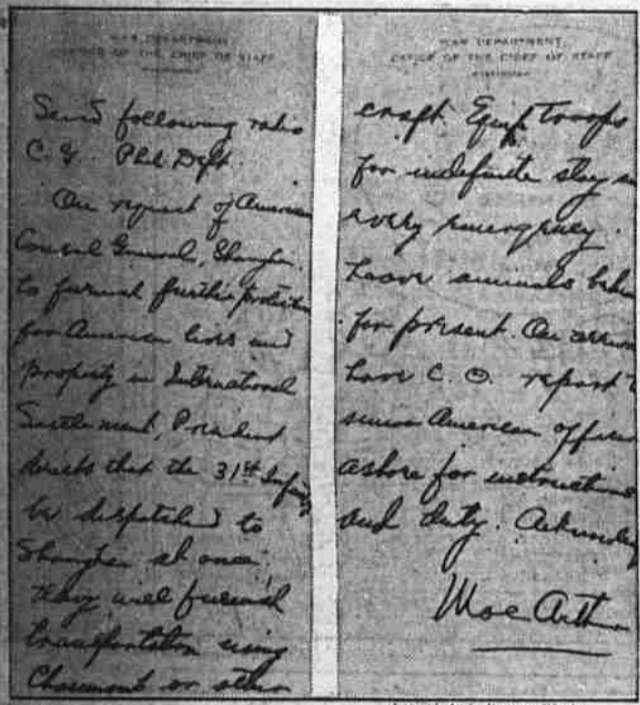 WAR DEPARTMENT
OFFICE OF THE CHIEF OF STAFF
Send following radio
C. G. Phil Dept.
On request of American
Consul General, Shanghai
to furnish further protection
for American lives and
property in International
Settlement, President
directs that the 31st Infty
be dispatched to
Shanghai at once.
Navy will furnish
transportation using
Chaumont or other
WAR DEPARTMENT
OFFICE OF THE CHIEF OF STAFF
craft. Equip troops
for indefinite stay
every emergency.
Leave animals
for present. On
have C. O. report
senior American
ashore for instructions
and duty.
MacArthur